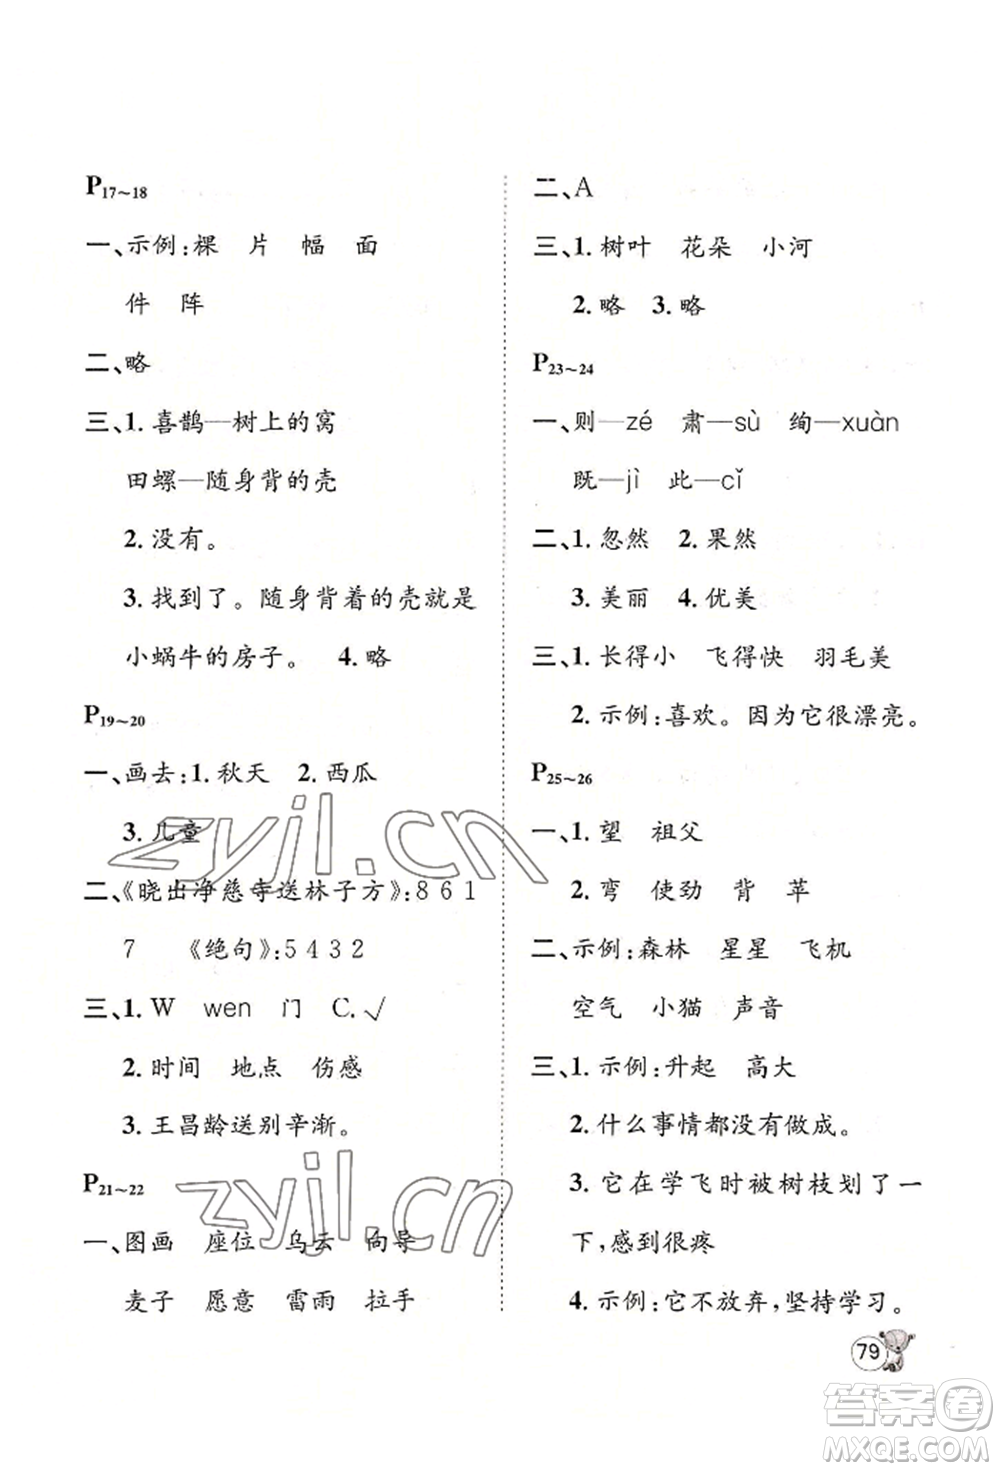 P17~18
一、示例:棵 片 幅 面
件 阵
二、略
三、1. 喜鹊—树上的窝
田螺—随身背的壳
2. 没有。
3. 找到了。随身背着的壳就是
小蜗牛的房子。 4. 略
P19~20
一、画去:1. 秋天 2. 西瓜
3. 儿童
二、《晓出净慈寺送林子方》:8 6 1
7 《绝句》:5 4 3 2
三、1. W wen 门 C. √
2. 时间 地点 伤感
3. 王昌龄送别辛渐。
P21~22
一、图画 座位 乌云 向导
麦子 愿意 雷雨 拉手
二、A
三、1. 树叶 花朵 小河
2. 略 3. 略
P23~24
一、则—zé 肃—sù 绚—xuàn
既—jì 此—cǐ
二、1. 忽然 2. 果然
3. 美丽 4. 优美
三、1. 长得小 飞得快 羽毛美
2. 示例:喜欢。因为它很漂亮。
P25~26
一、1. 望 祖父
2. 弯 使劲 背 苹
二、示例:森林 星星 飞机
空气 小猫 声音
三、1. 示例:升起 高大
2. 什么事情都没有做成。
3. 它在学飞时被树枝划了一
下,感到很疼
4. 示例:它不放弃,坚持学习。
79
zyjl.cn
zyjl.cn
答案圈
MXQE.COM